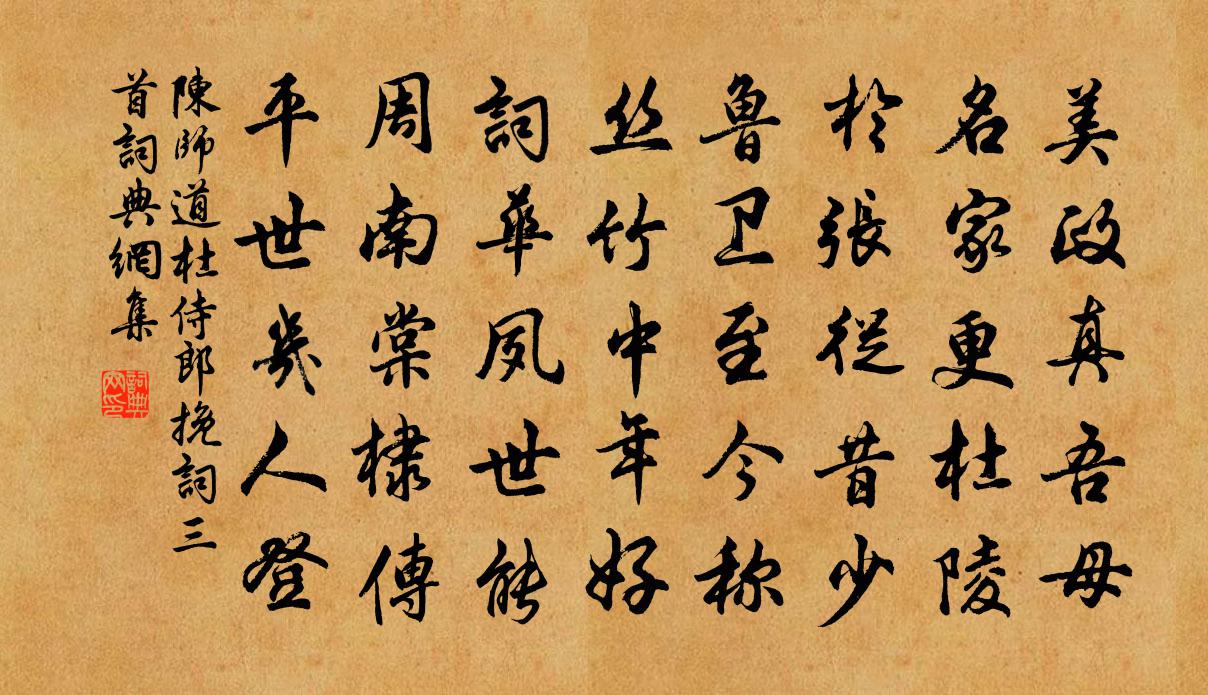 美政真吾母
名家更杜陵
於張從昔少
魯卫至今称
丝竹中年好
詞華夙世能
周南棠棣傳
平世幾人登
陳師道杜侍郎挽詞三
首詞典網集
詞典
网印